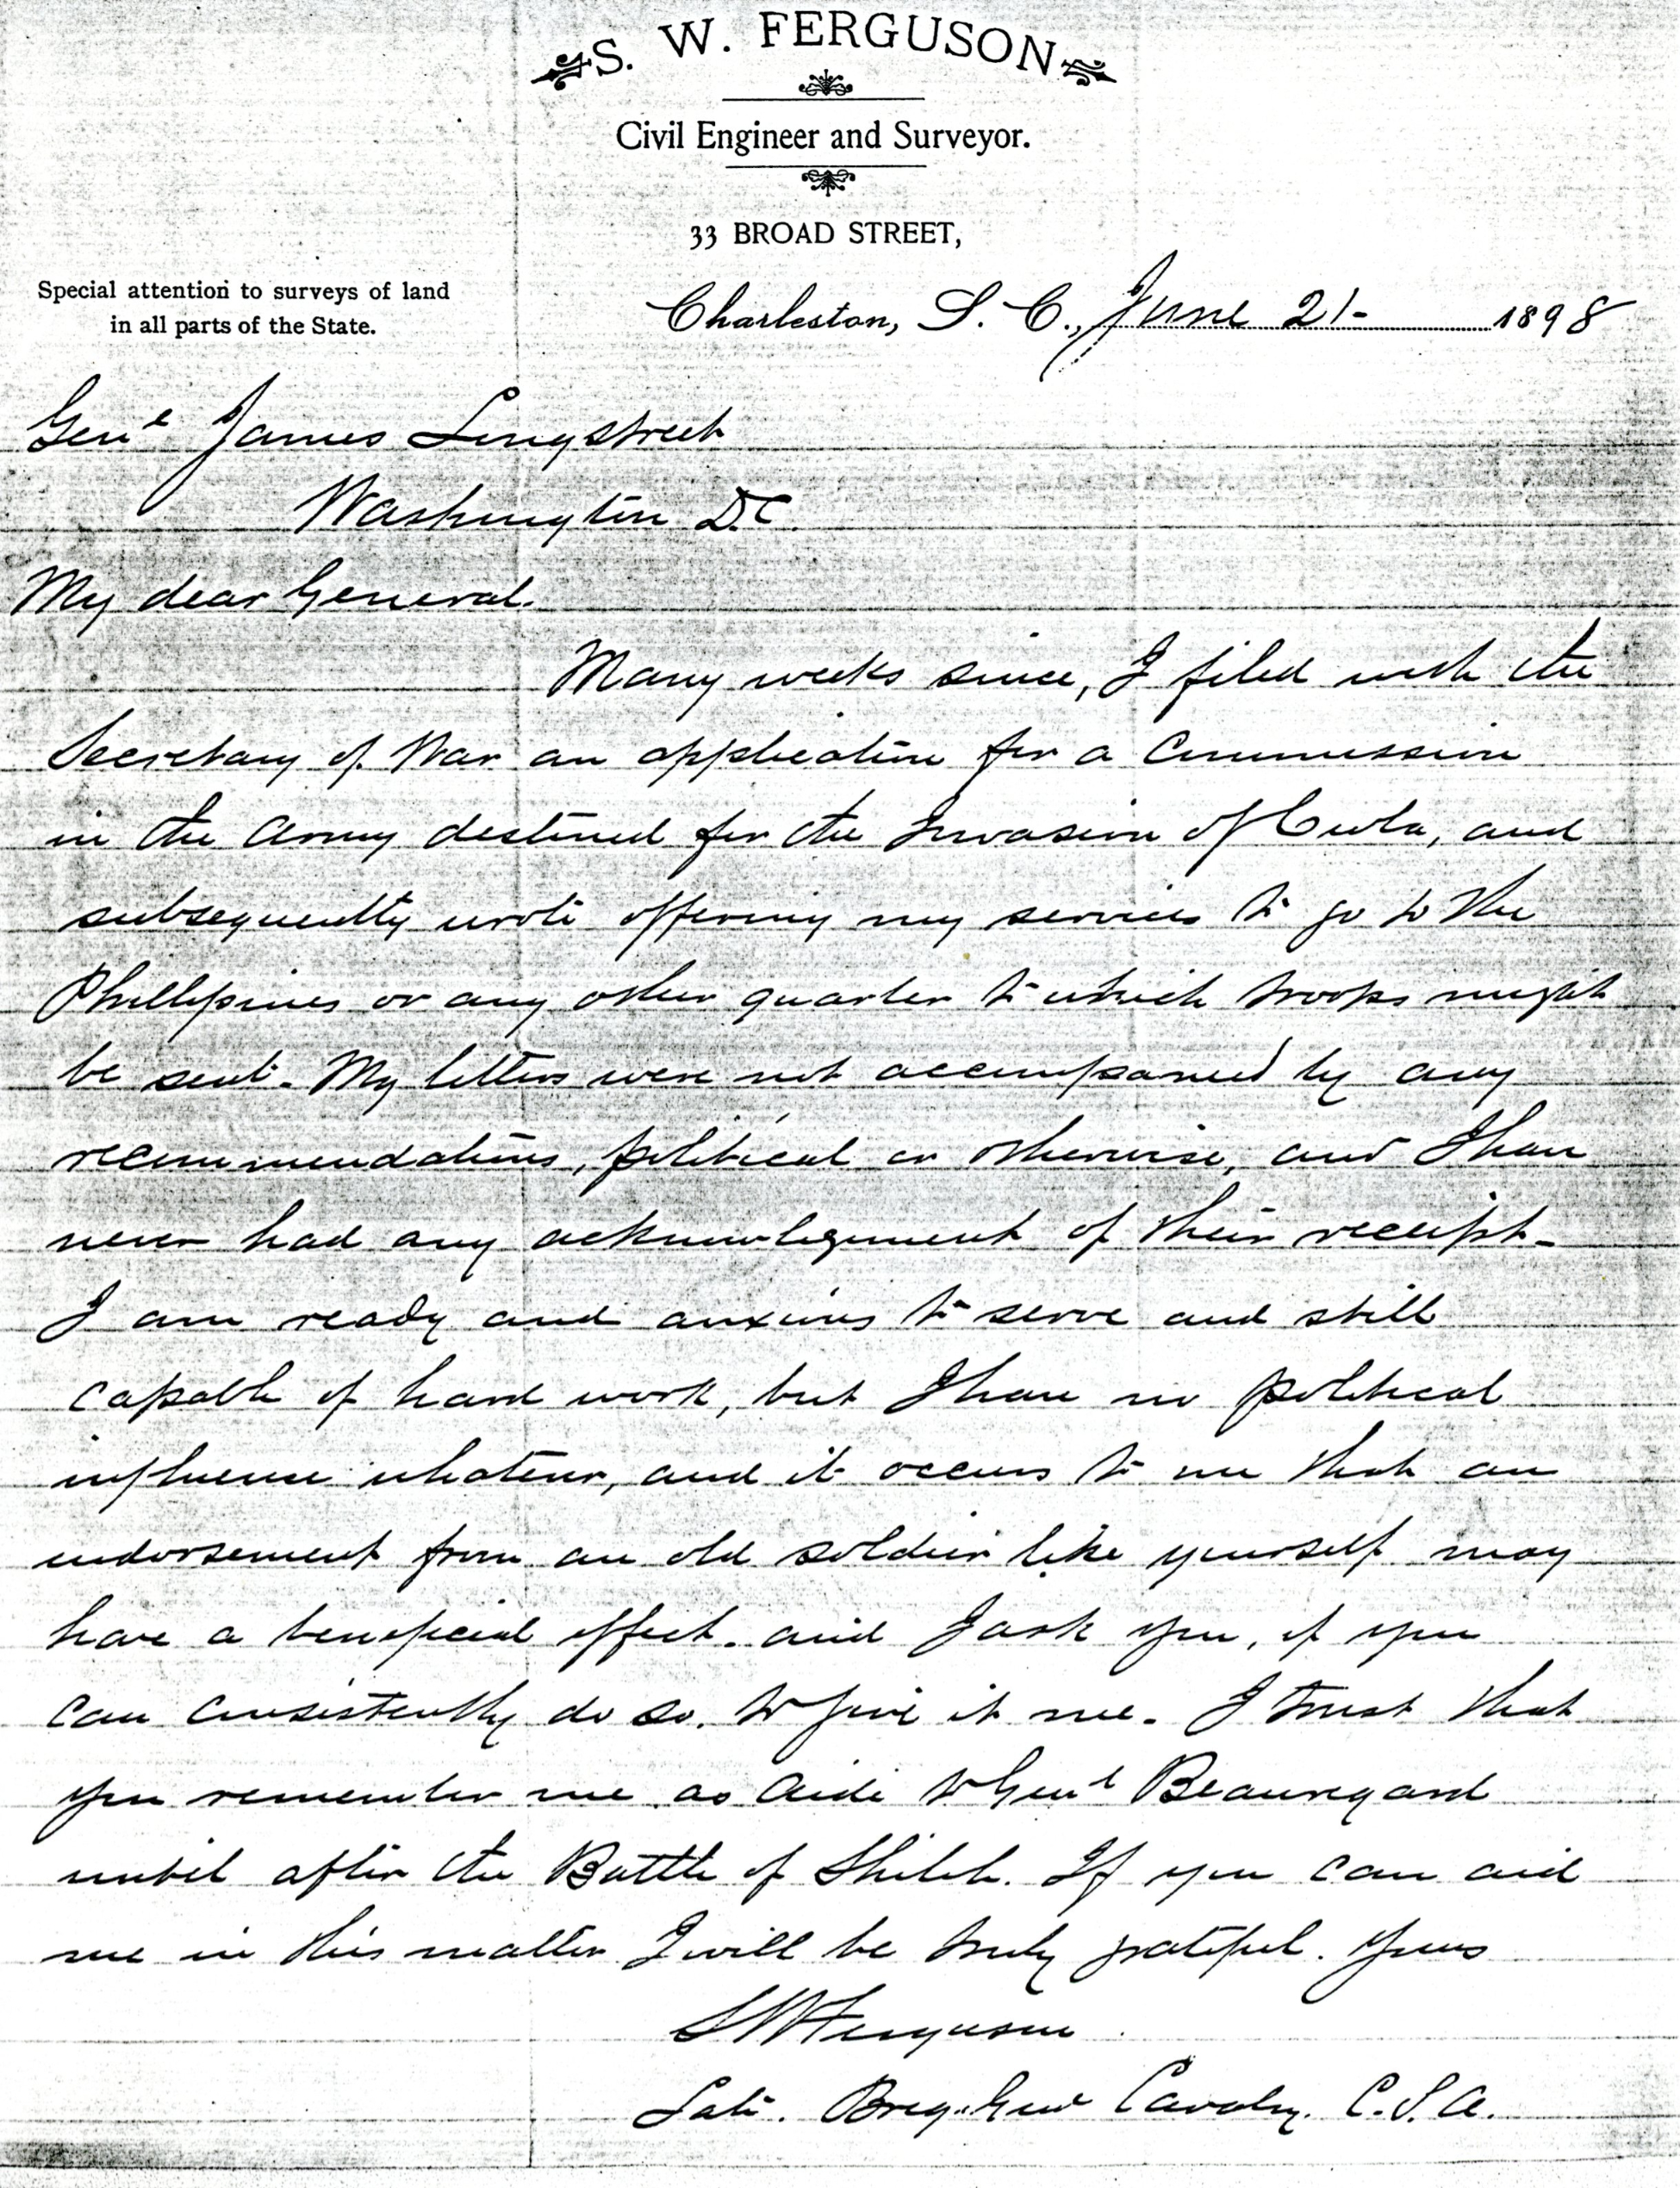 S. W. FERGUSON
Civil Engineer and Surveyor.
33 BROAD STREET,
Special attention to surveys of land
in all parts of the State.
Charleston, S. C., June 21- 1898
Genl James Longstreet
Washington D.C.
My dear General.
Many weeks since, I filed with the
Secretary of War an application for a Commission
in the Army destined for the Invasion of Cuba, and
subsequently wrote offering my services to go to the
Phillipines or any other quarter to which troops might
be sent. My letters were not accompanied by any
recommendations, political or otherwise, and I have
never had any acknowlegement of their receipt-
I am ready and anxious to serve and still
capable of hard work, but I have no political
influence whatever, and it occurs to me that an
endorsement from an old soldier like yourself may
have a beneficial effect. and I ask you, if you
can consistently do so, to give it me. I trust that
you remember me as Aide to Genl Beauregard
until after the Battle of Shiloh. If you can aid
me in this matter I will be truly grateful. Yours
SWFerguson
Late. Brig. Genl Cavalry. C.S.A.